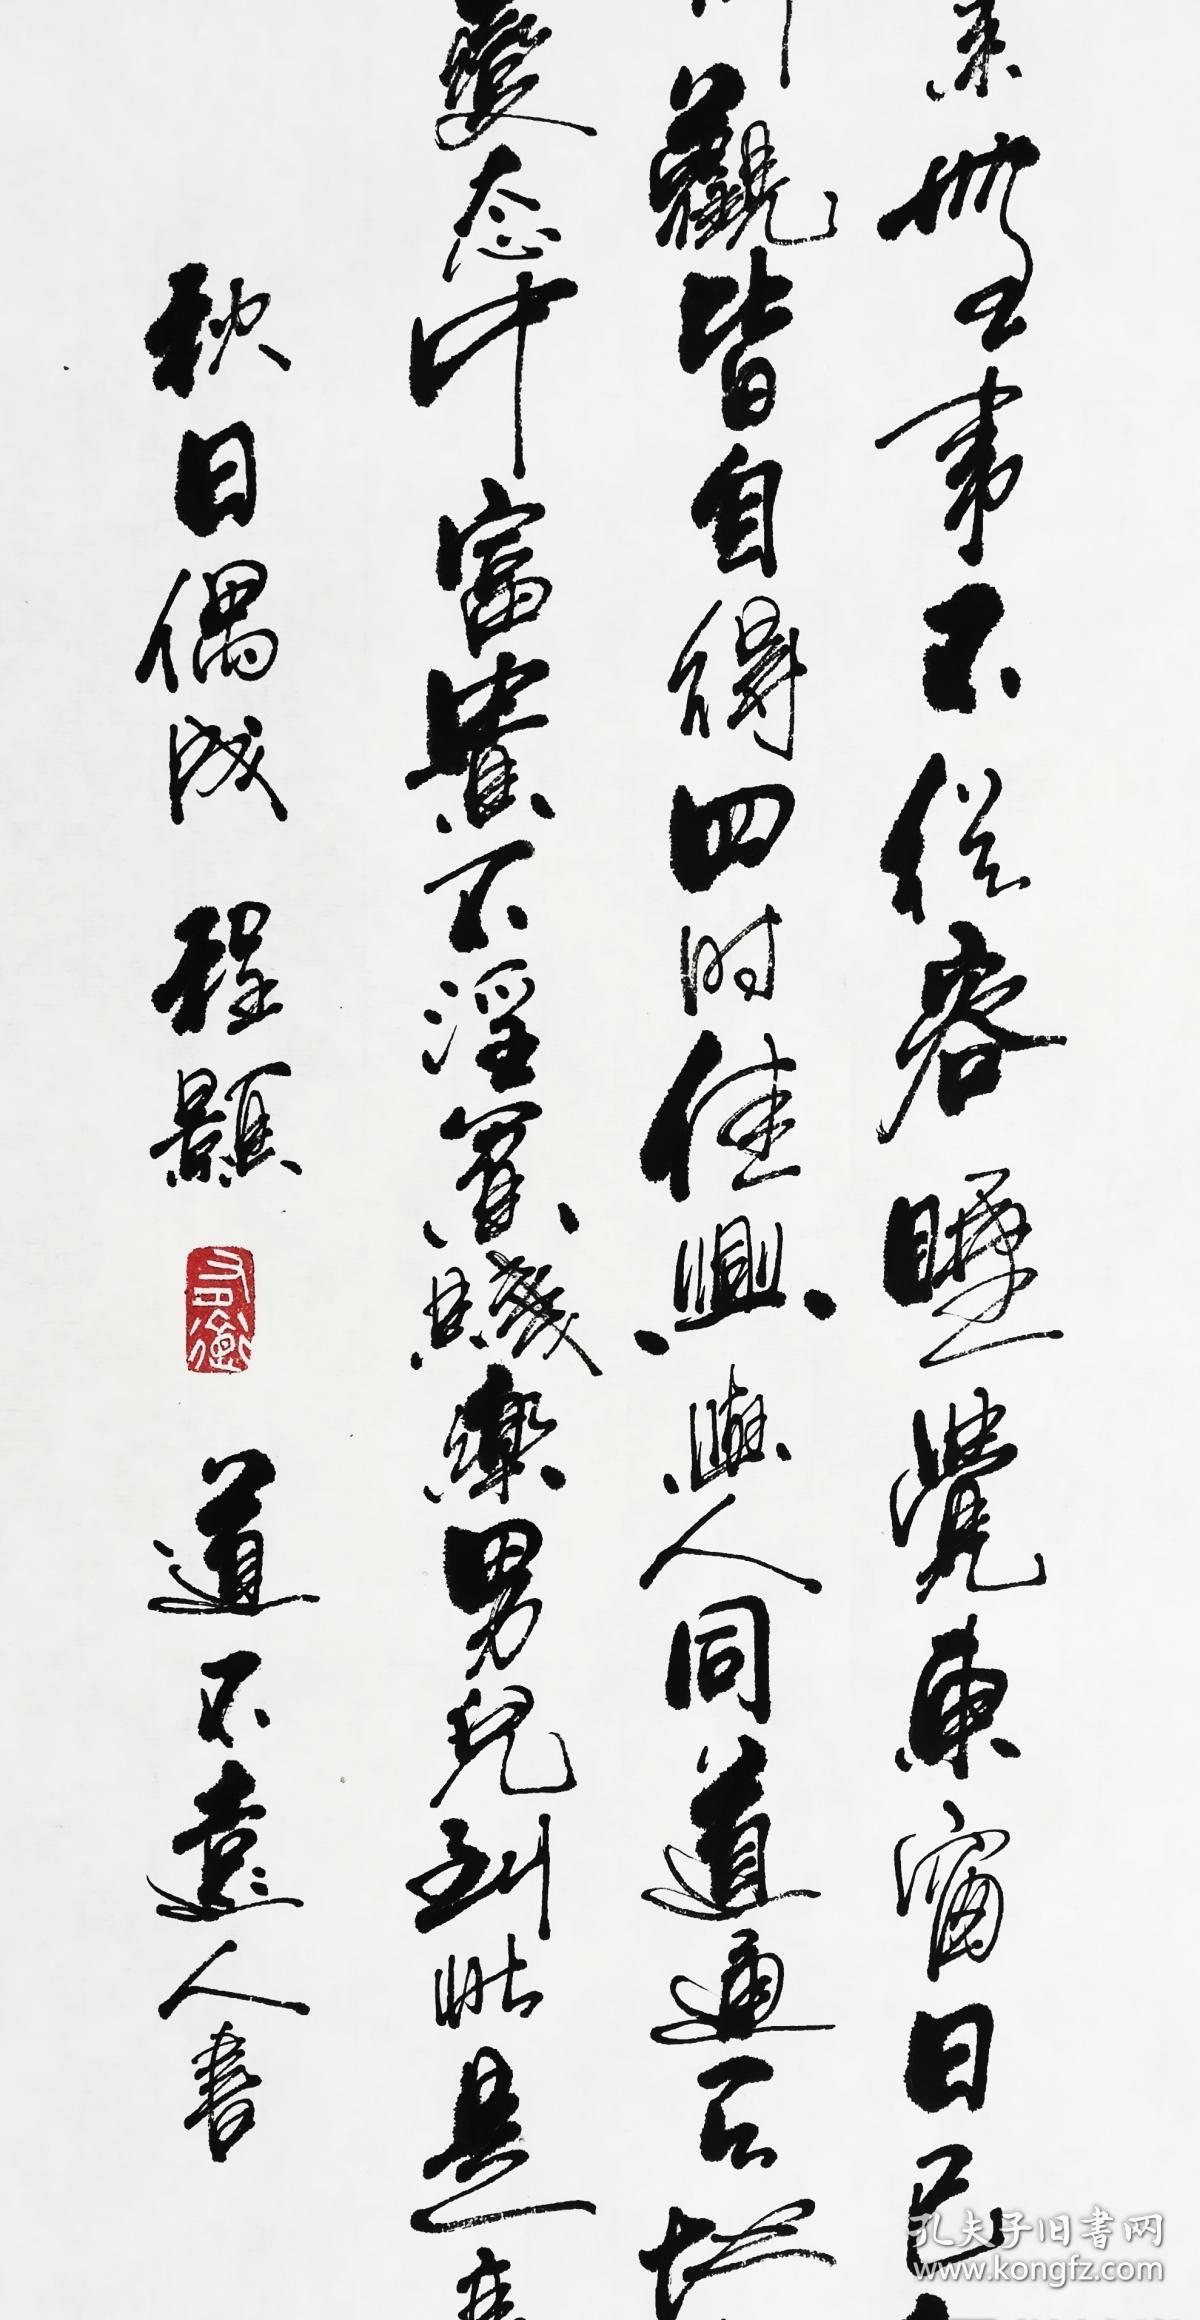 来無事不従容睡覺東窗日已
觀皆自得四时佳興與人同道通天地
變态中富貴不淫貧賤樂男兒到此是豪
秋日偶成 程顥 道不遠人書
孔夫子旧書网
www.kongfz.com